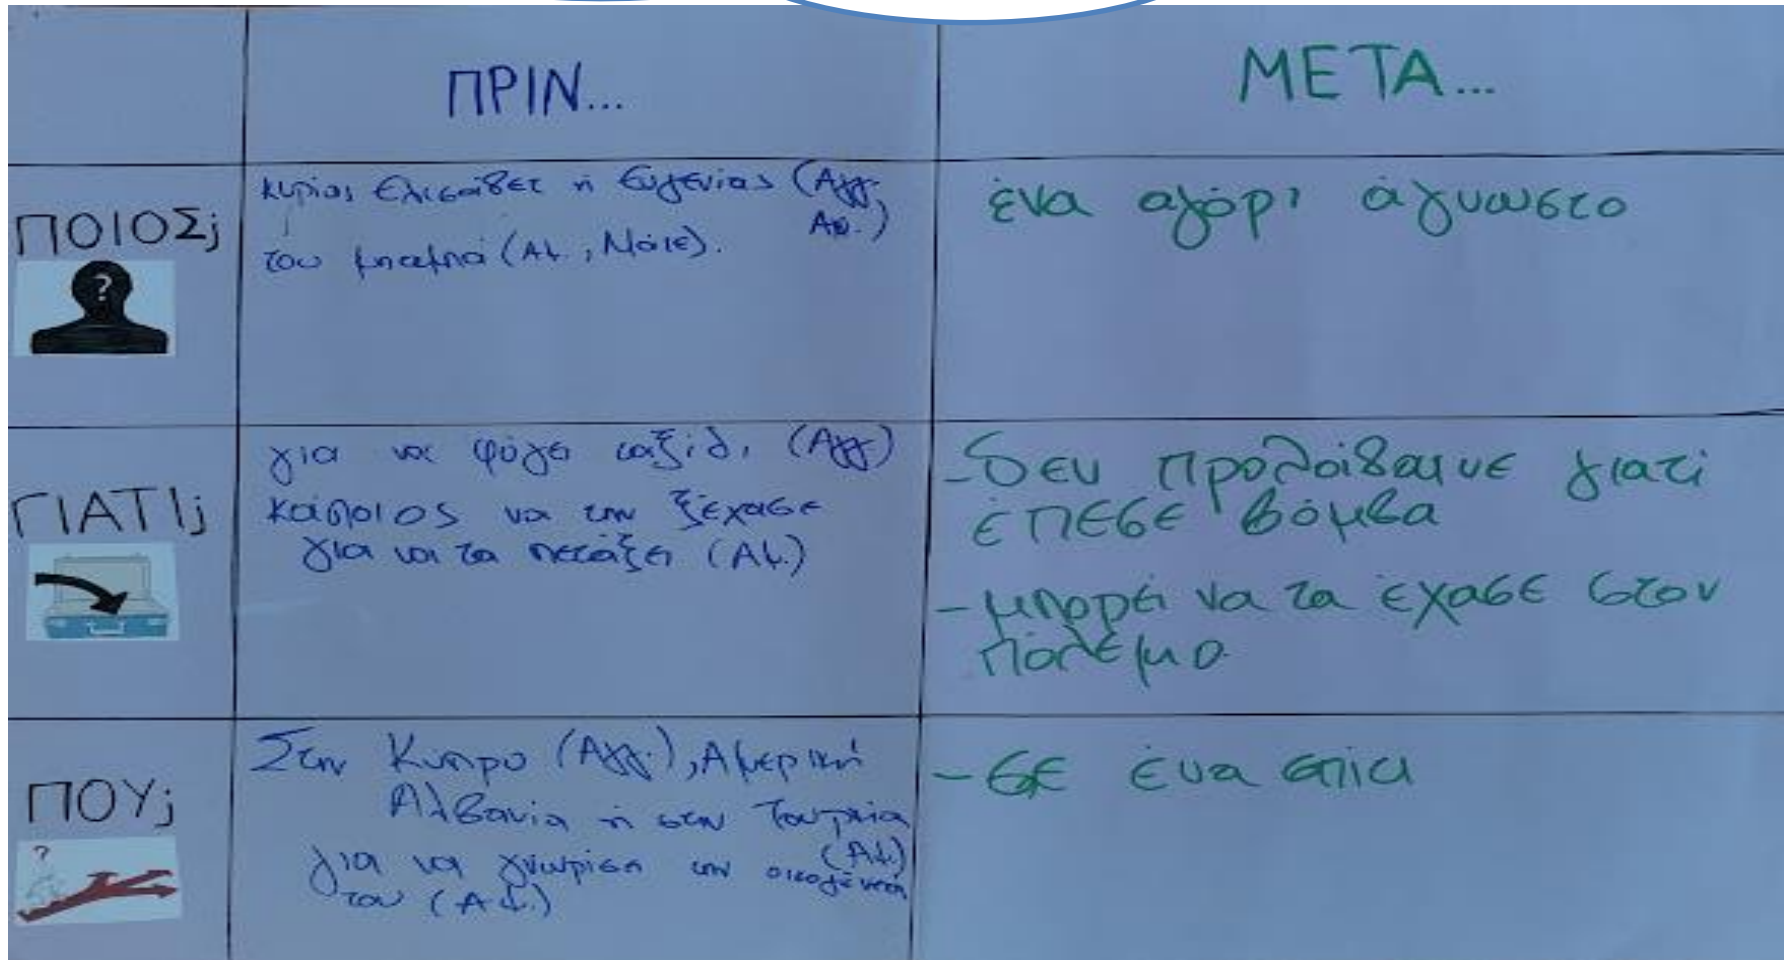 ΠΡΙΝ...
ΜΕΤΑ...
ΠΟΙΟΣ;
κυρίας Ελισάβετ ή Ευγενίας (Αγγ.,
Αφ.)
του μπαμπά (Αλ., Μάιε).
ένα αγόρι άγνωστο
ΓΙΑΤΙ;
για να φύγει ταξίδι (Αγγ)
κάποιος να την ξέχασε
για να τα πετάξει (Αλ.)
-δεν προλάβαινε γιατί
έπεσε βόμβα
-μπορεί να τα έχασε στον
πόλεμο
ΠΟΥ;
Στην Κύπρο (Αγγ.), Αμερική
Αλβανία ή στην Τουρκία
(Αλ.)
για να γνωρίσει την οικογένεια
του
-σε ένα σπίτι